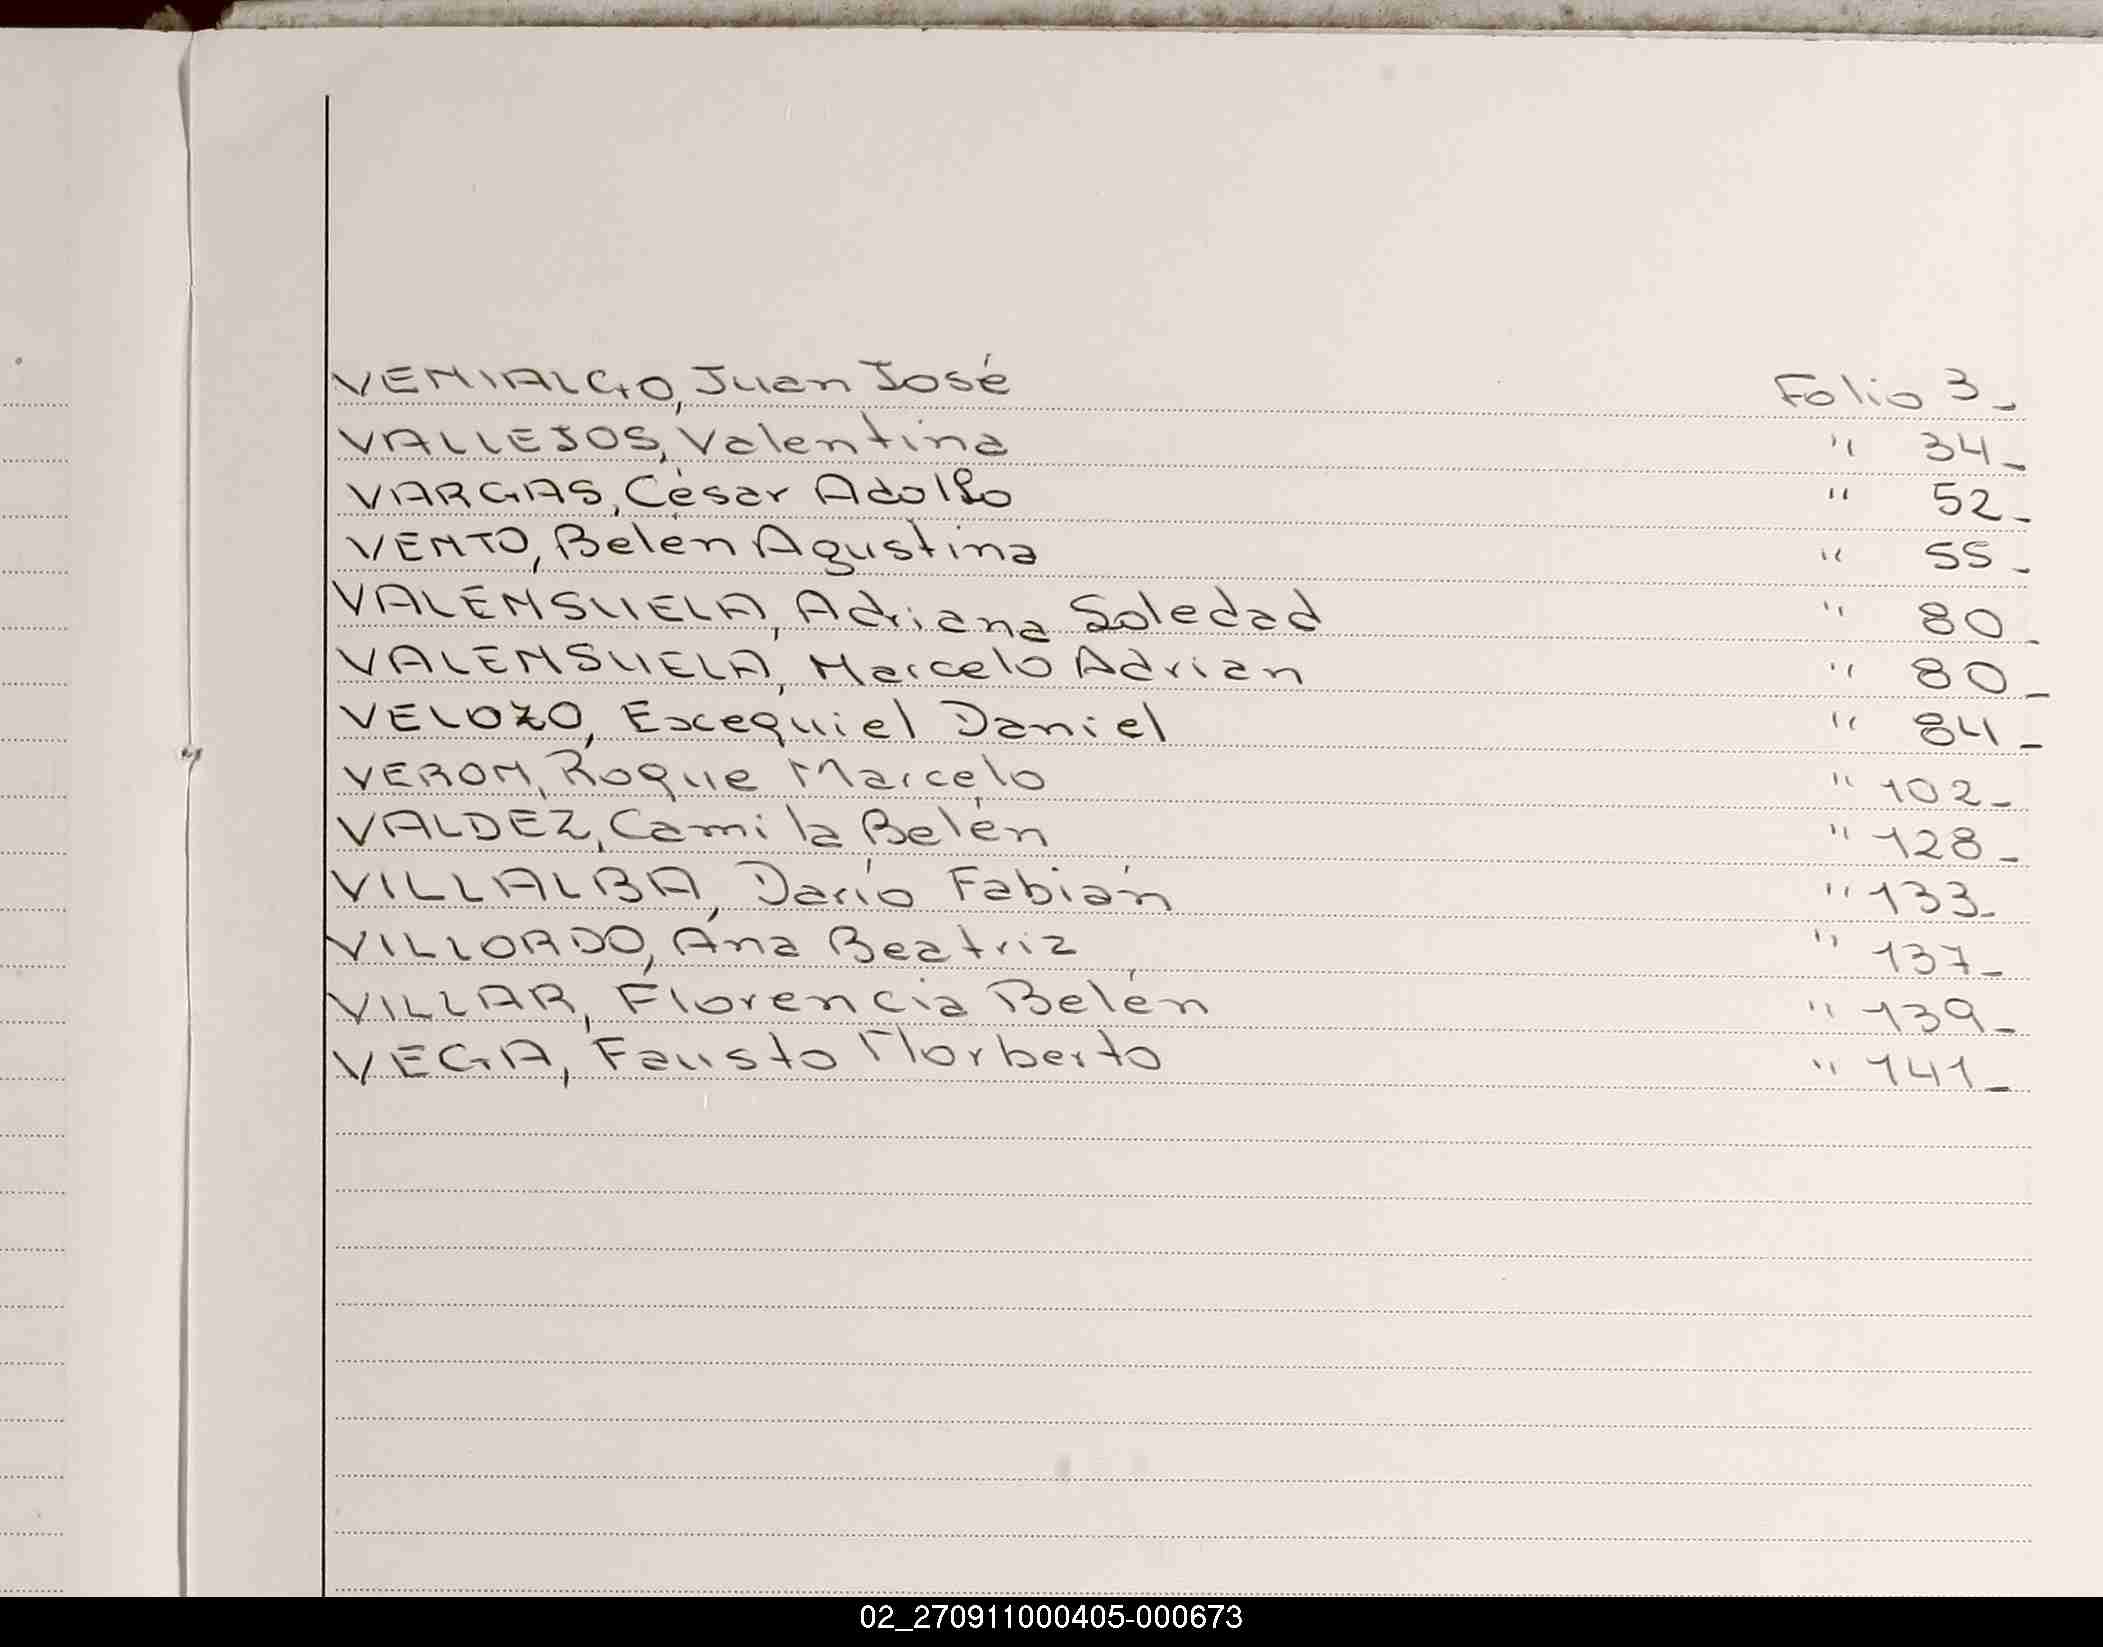 VENIALGO, Juan José Folio 3_
VALLEJOS, Valentina " 34_
VARGAS, César Adolfo " 52_
VENTO, Belén Agustina " 55_
VALENSUELA, Adriana Soledad " 80_
VALENSUELA, Marcelo Adrian " 80_
VELOZO, Excequiel Daniel " 84_
VERON, Roque Marcelo " 102_
VALDEZ, Camila Belén " 128_
VILLALBA, Darío Fabián " 133_
VILLORDO, Ana Beatriz " 137_
VILLAR, Florencia Belén " 139_
VEGA, Fausto Norberto " 141_
02_270911000405-000673